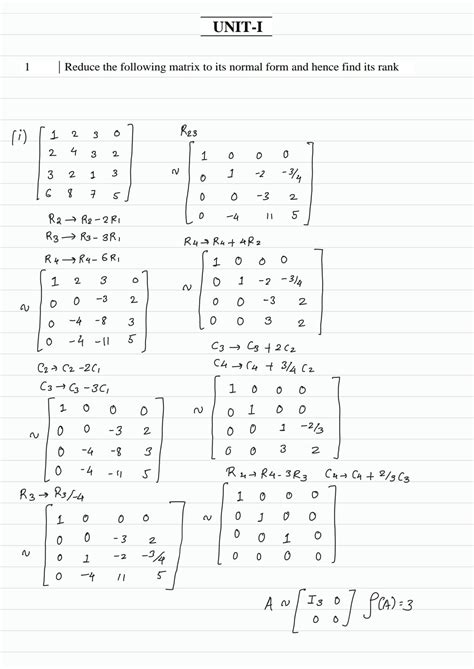 UNIT-I
1 | Reduce the following matrix to its normal form and hence find its rank
(i) [ 1 2 3 0
2 4 3 2
3 2 1 3
6 8 7 5 ]
R2 → R2 - 2R1
R3 → R3 - 3R1
R4 → R4 - 6R1
~ [ 1 2 3 0
0 0 -3 2
0 -4 -8 3
0 -4 -11 5 ]
C2 → C2 - 2C1
C3 → C3 - 3C1
~ [ 1 0 0 0
0 0 -3 2
0 -4 -8 3
0 -4 -11 5 ]
R3 → R3/-4
~ [ 1 0 0 0
0 0 -3 2
0 1 -2 -3/4
0 -4 11 5 ]
R23
~ [ 1 0 0 0
0 1 -2 -3/4
0 0 -3 2
0 -4 11 5 ]
R4 → R4 + 4R2
~ [ 1 0 0 0
0 1 -2 -3/4
0 0 -3 2
0 0 3 2 ]
C3 → C3 + 2C2
C4 → C4 + 3/4 C2
~ [ 1 0 0 0
0 1 0 0
0 0 1 -2/3
0 0 3 2 ]
R4 → R4 - 3R3 C4 → C4 + 2/3 C3
~ [ 1 0 0 0
0 1 0 0
0 0 1 0
0 0 0 0 ]
A ~ [ I3 0
0 0 ] ρ(A) = 3